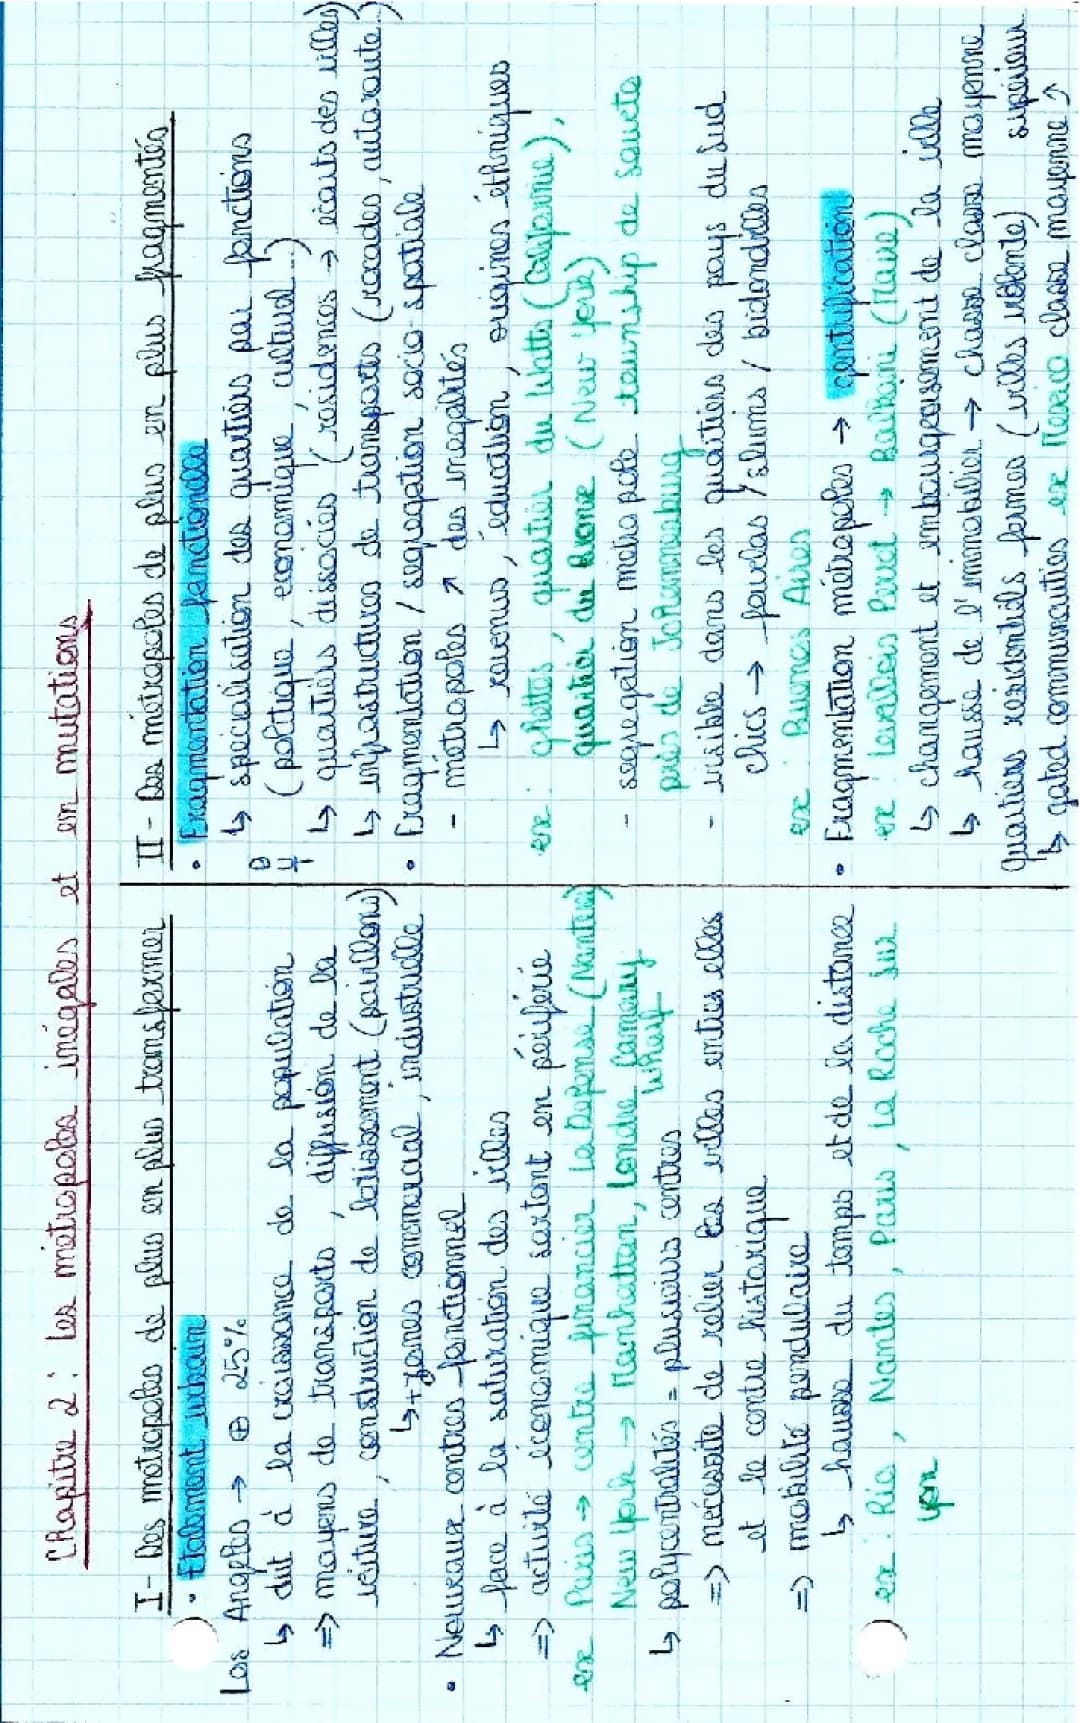 Chapitre 2 : les métropoles inégales et en mutations
I - Des métropoles de plus en plus transformer
• Etalement urbain
Los Angeles → ⊕ 25%
↳ dût à la croissance de la population
=> moyens de transports, diffusion de la
voiture, construction de lotissement (pavillons)
↳ + zones commercial, industrielle
• Nouveaux centres fonctionnel
↳ face à la saturation des villes
=> activité économique sortent en périférie
ex Paris → centre financier La Defense (Nanterre)
New York → Manhattan, Londre Camary
Wharf
↳ polycentralités = plusieurs centres
=> nécessite de relier les villes entres elles
et le centre historique
=> mobilité pendulaire
↳ hausse du temps et de la distance
ex : Rio, Nantes, Paris, La Roche sur
yon
II - Des métropoles de plus en plus fragmentés
• Fragmentation fonctionelle
↳ specialisation des quartiers par fonctions
(politique, economique, culturel...)
↳ quartiers dissociés (résidences → écarts des villes)
↳ infrastructures de transports (rocades, autoroute..)
• Fragmentation / segregation socio-spatiale
- métropoles ↗ des inégalités
↳ revenus, éducation, origines éthniques
ex : ghettos, quartier du Watts (Californie),
quartier du Bronx (New York)
- segregation metropole township de Soweto
près de Johannesburg
- visible dans les quartiers des pays du Sud
chics → favelas / slums / bidonvilles
ex : Buenos Aires
• Fragmentation métropoles → gentrification
ex : Levallois Perret → Balkani (maire)
↳ changement et embourgeoisement de la ville
↳ hausse de l'immobilier → chasse classe moyenne
Quartiers résidentiels fermés (villes violente) supérieur
↳ gated communauties ex Mexico classe moyenne ↗